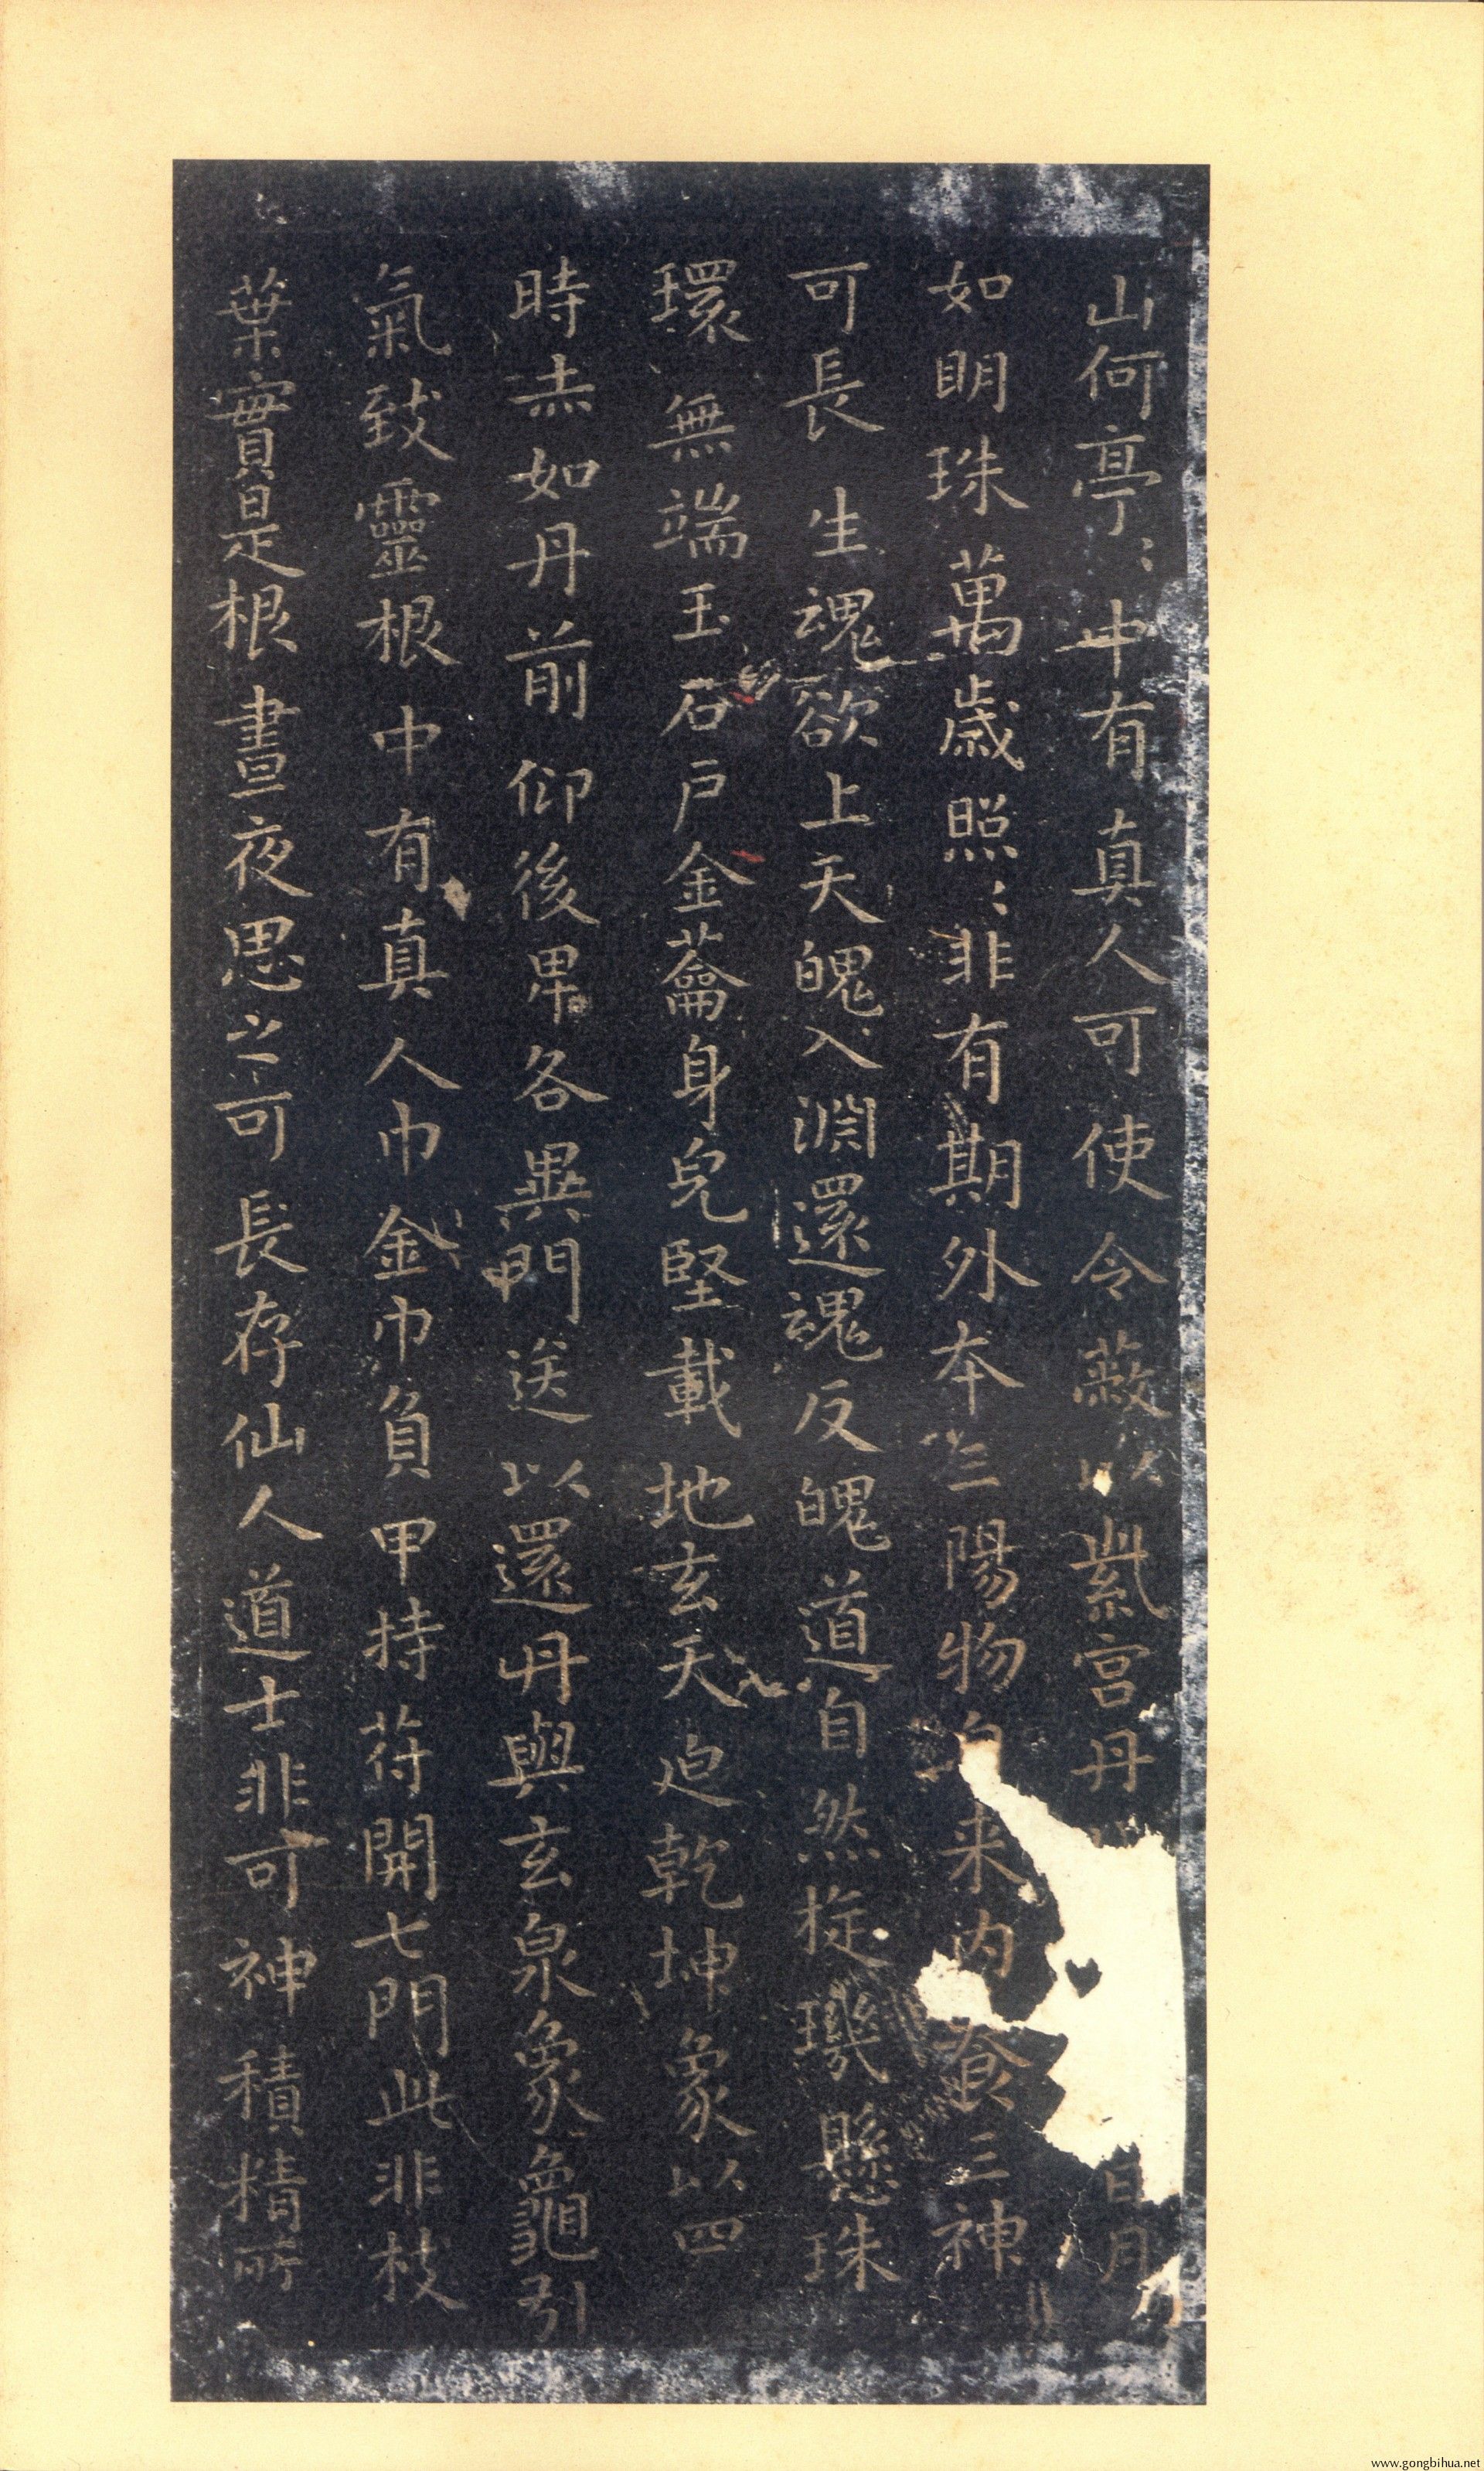 山何亭:中有真人可使令蔽以紫宮丹日月
如明珠萬歲照:非有期外本三陽物自来内養三神
可長生魂欲上天魄入淵還魂反魄道自然旋璣懸珠
環無端玉石戶金蘥身兒堅載地玄天迫乾坤象以四
時赤如丹前仰後卑各異門送以還丹與玄泉象龜引
氣致靈根中有真人巾金巾負甲持苻開七門此非枝
葉實是根晝夜思之可長存仙人道士非可神積精所
www.gongbihua.net